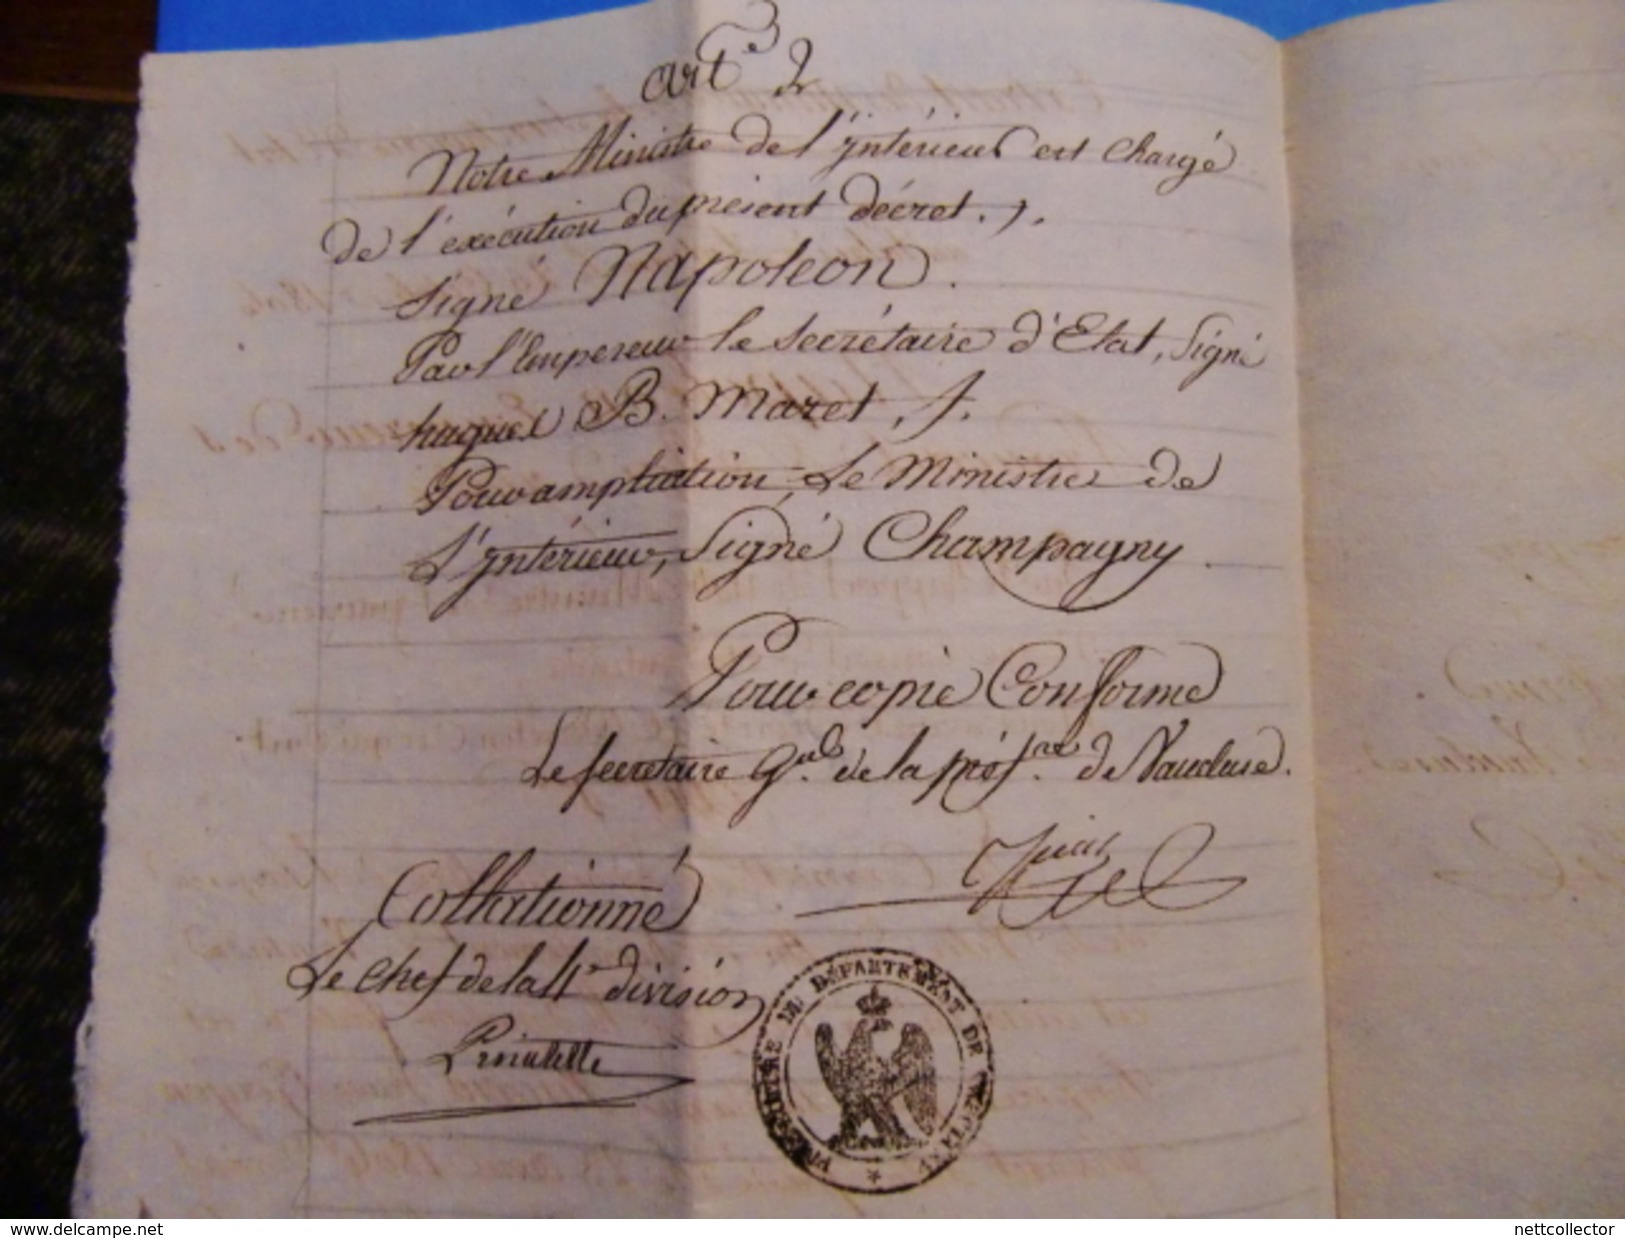 art^e 2
Notre Ministre de l'ynterieur est chargé
de l'exécution du present décret. ).
signé Napoleon.
Par l'Empereur le secrétaire d'Etat, Signé
hugues B. Maret, /.
Pour ampliation, Le Ministre de
L'ynterieur, Signé Champagny
Pour copie Conforme
Le secretaire G.^al de la préf.^re de Vaucluse.
Collationné
Le chef de la 1^re division
PRÉFECTURE DU DÉPARTEMENT DE VAUCLUSE
www.delcampe.net
nettcollector